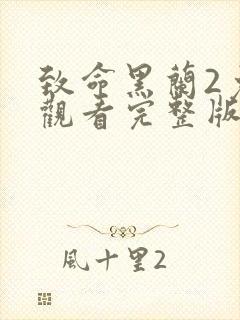 致命黑蘭2
觀看完整版
風十里2